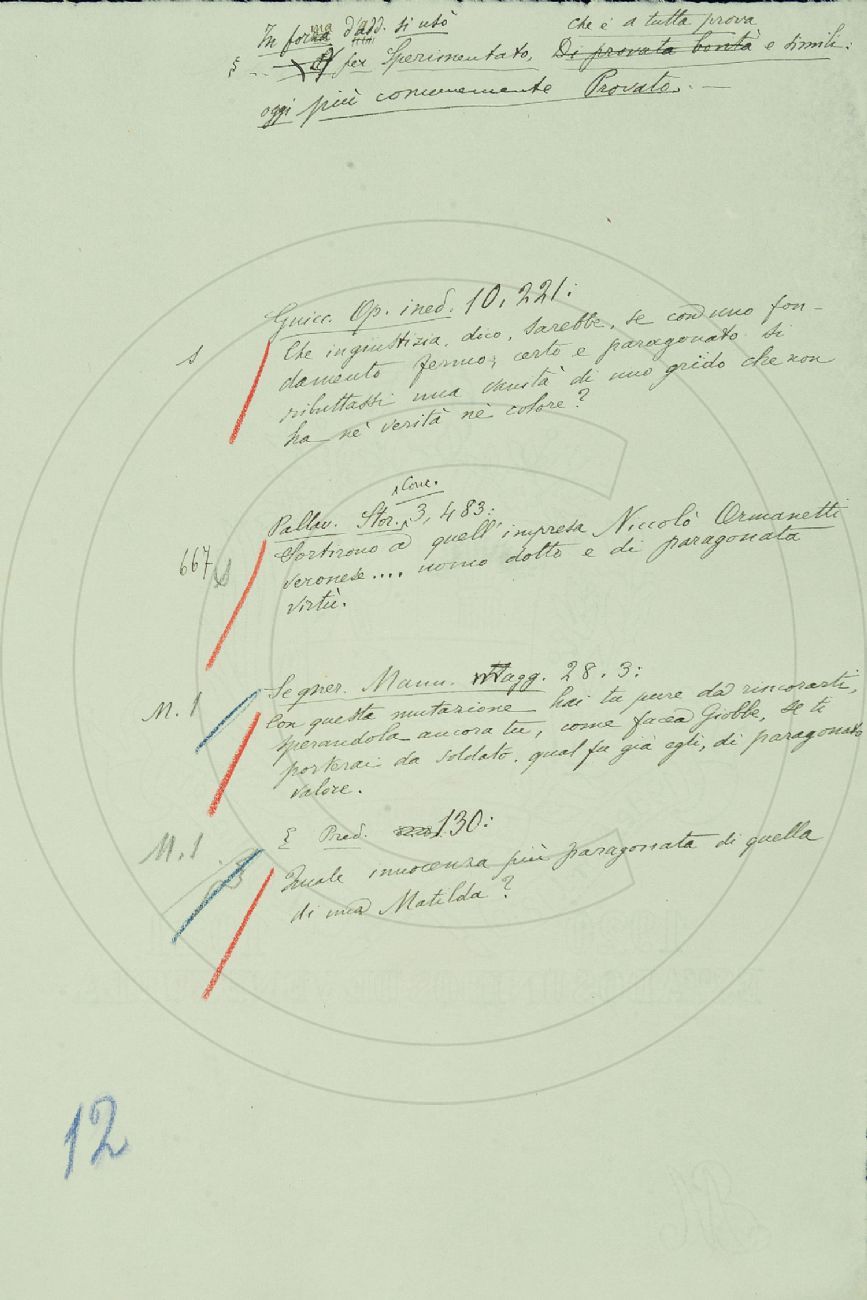 In forma d'add. si usò
che è a tutta prova
§ -- per Sperimentato, Di provata bontà e simili:
oggi più comunemente Provato. --
Guicc. Op. ined. 10, 221:
s
Che ingiustizia, dico, sarebbe, se con uno fon-
damento fermo, certo e paragonato si
ributtassi una chiarità di uno grido che non
ha nè verità nè colore?
Conc.
Pallav. Stor. 3, 483:
667 s
Sortirono a quell'impresa Niccolò Ormanetti
veronese.... uomo dotto e di paragonata
virtù.
Segner. Mann. Magg. 28. 3:
M. 1
Con questa mutazione hai tu pure da rincorarti,
sperandola ancora tu, come facea Giobbe, se ti
porterai da soldato, qual fu già egli, di paragonato
valore.
M. 1
E Pred. 130:
Quale innocenza più paragonata di quella
di una Matilda?
12